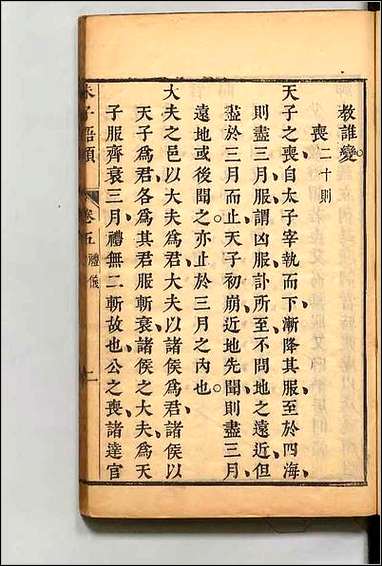 教誰變
喪二十則
天子之喪自太子宰執而下漸降其服至於四海
則盡三月服謂凶服訃所至不問地之遠近但
盡於三月而止天子初崩近地先聞則盡三月
遠地或後聞之亦止於三月之内也
大夫之邑以大夫爲君大夫以諸侯爲君諸侯以
天子爲君各爲其君服斬衰諸侯之大夫爲天
子服齊衰三月禮無二斬故也公之喪諸達官
朱子語類 卷五 禮儀 二